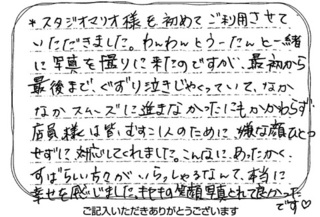 *スタジオマリオ様を初めてご利用させて
いただきました。わんわんとうーたんと一緒
に写真を撮りに来たのですが、最初から
最後まで、ぐずり泣きじゃくっていて、なか
なかスムーズに進まなかったにもかかわらず、
店員様は皆、むすこ1人のために、嫌な顔ひとつ
せずに対応してくれました。こんなに、あったかく、
すばらしい方々がいらっしゃるなんて、本当に
幸せを感じました。笑顔写真とれて良かった
です♡
ご記入いただきありがとうございます